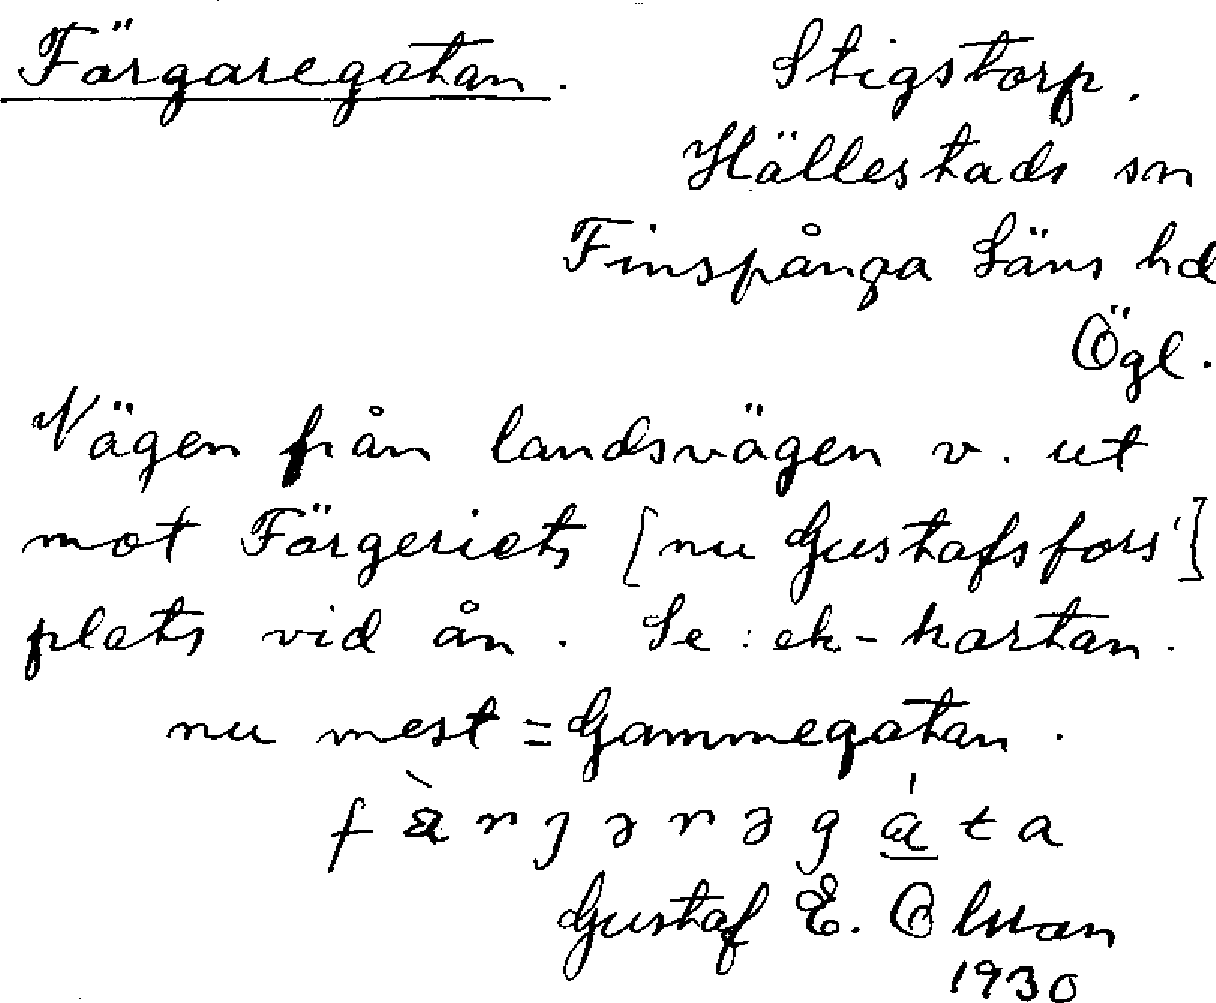 Färgaregatan. Stigstorp.
Hällestads sn
Finspånga läns hd
Ögl.
Vägen från landsvägen v. ut
mot Färgeriets [nu Gustafsfors']
plats vid ån. Se: ek-kartan.
nu mest = Gammegatan.
Gustaf E. Olsson
1930